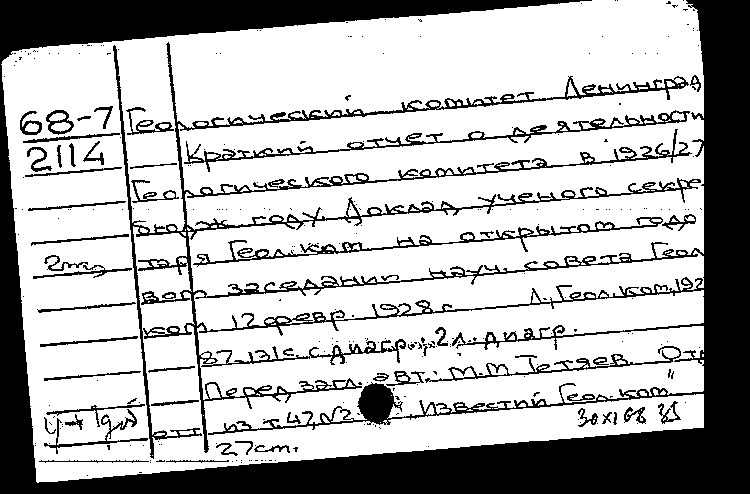 68-7
2114
Геологический комитет Ленинград
Краткий отчет о деятельности
Геологического комитета в 1926/27
бюдж. году. Доклад ученого секре-
таря Геол. ком. на открытом годо
вом заседании науч. совета Геол
ком. 12 февр. 1928 г. Л., Геол. ком, 192
87-131 с. с диагр.; 2 л. диагр.
Перед загл. авт.: М.М Тетяев. От
отт из т. 47, №2 "Известий Геол. ком"
27 cm.
30 XI 68